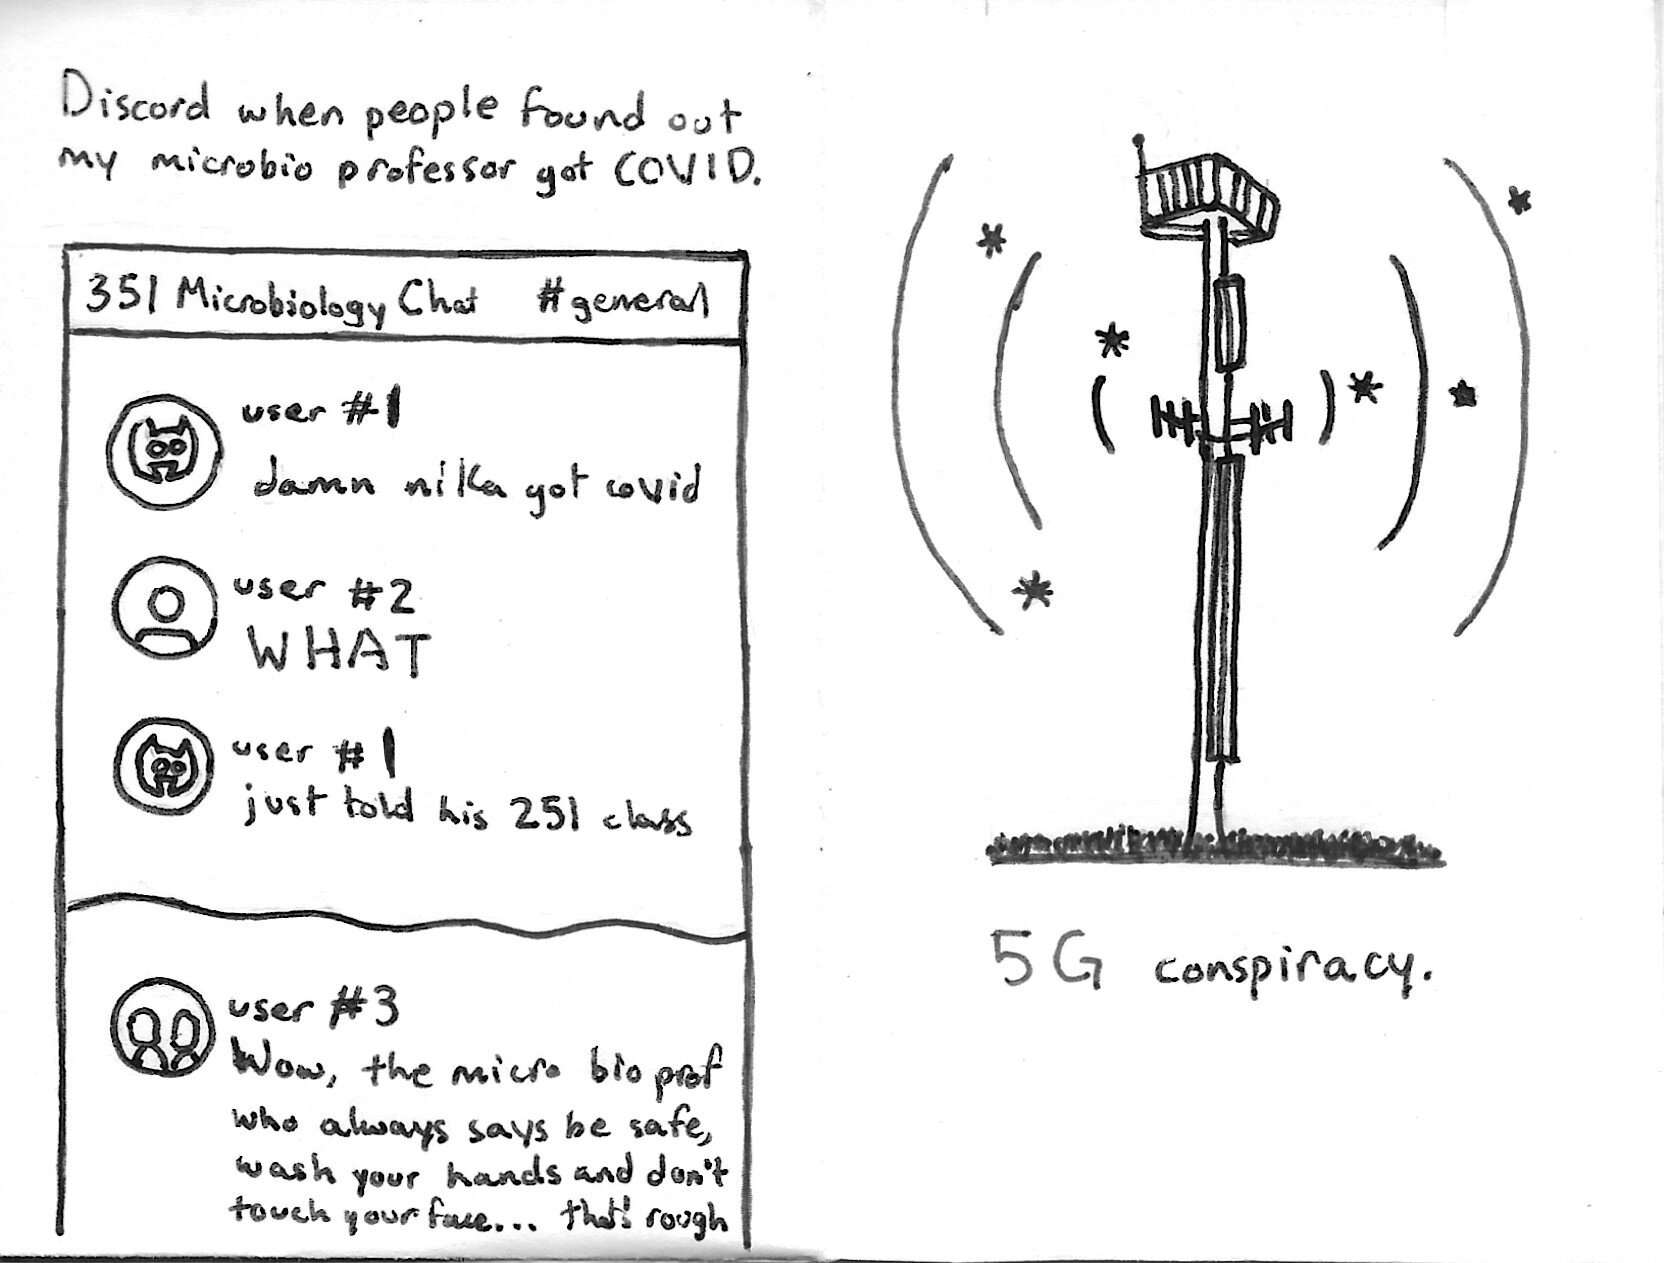 Discord when people found out
my microbio professor got COVID.
351 Microbiology Chat #general
user #1
damn nika got covid
user #2
WHAT
user #1
just told his 251 class
user #3
Wow, the micro bio prof
who always says be safe,
wash your hands and don't
touch your face... that's rough
5G conspiracy.